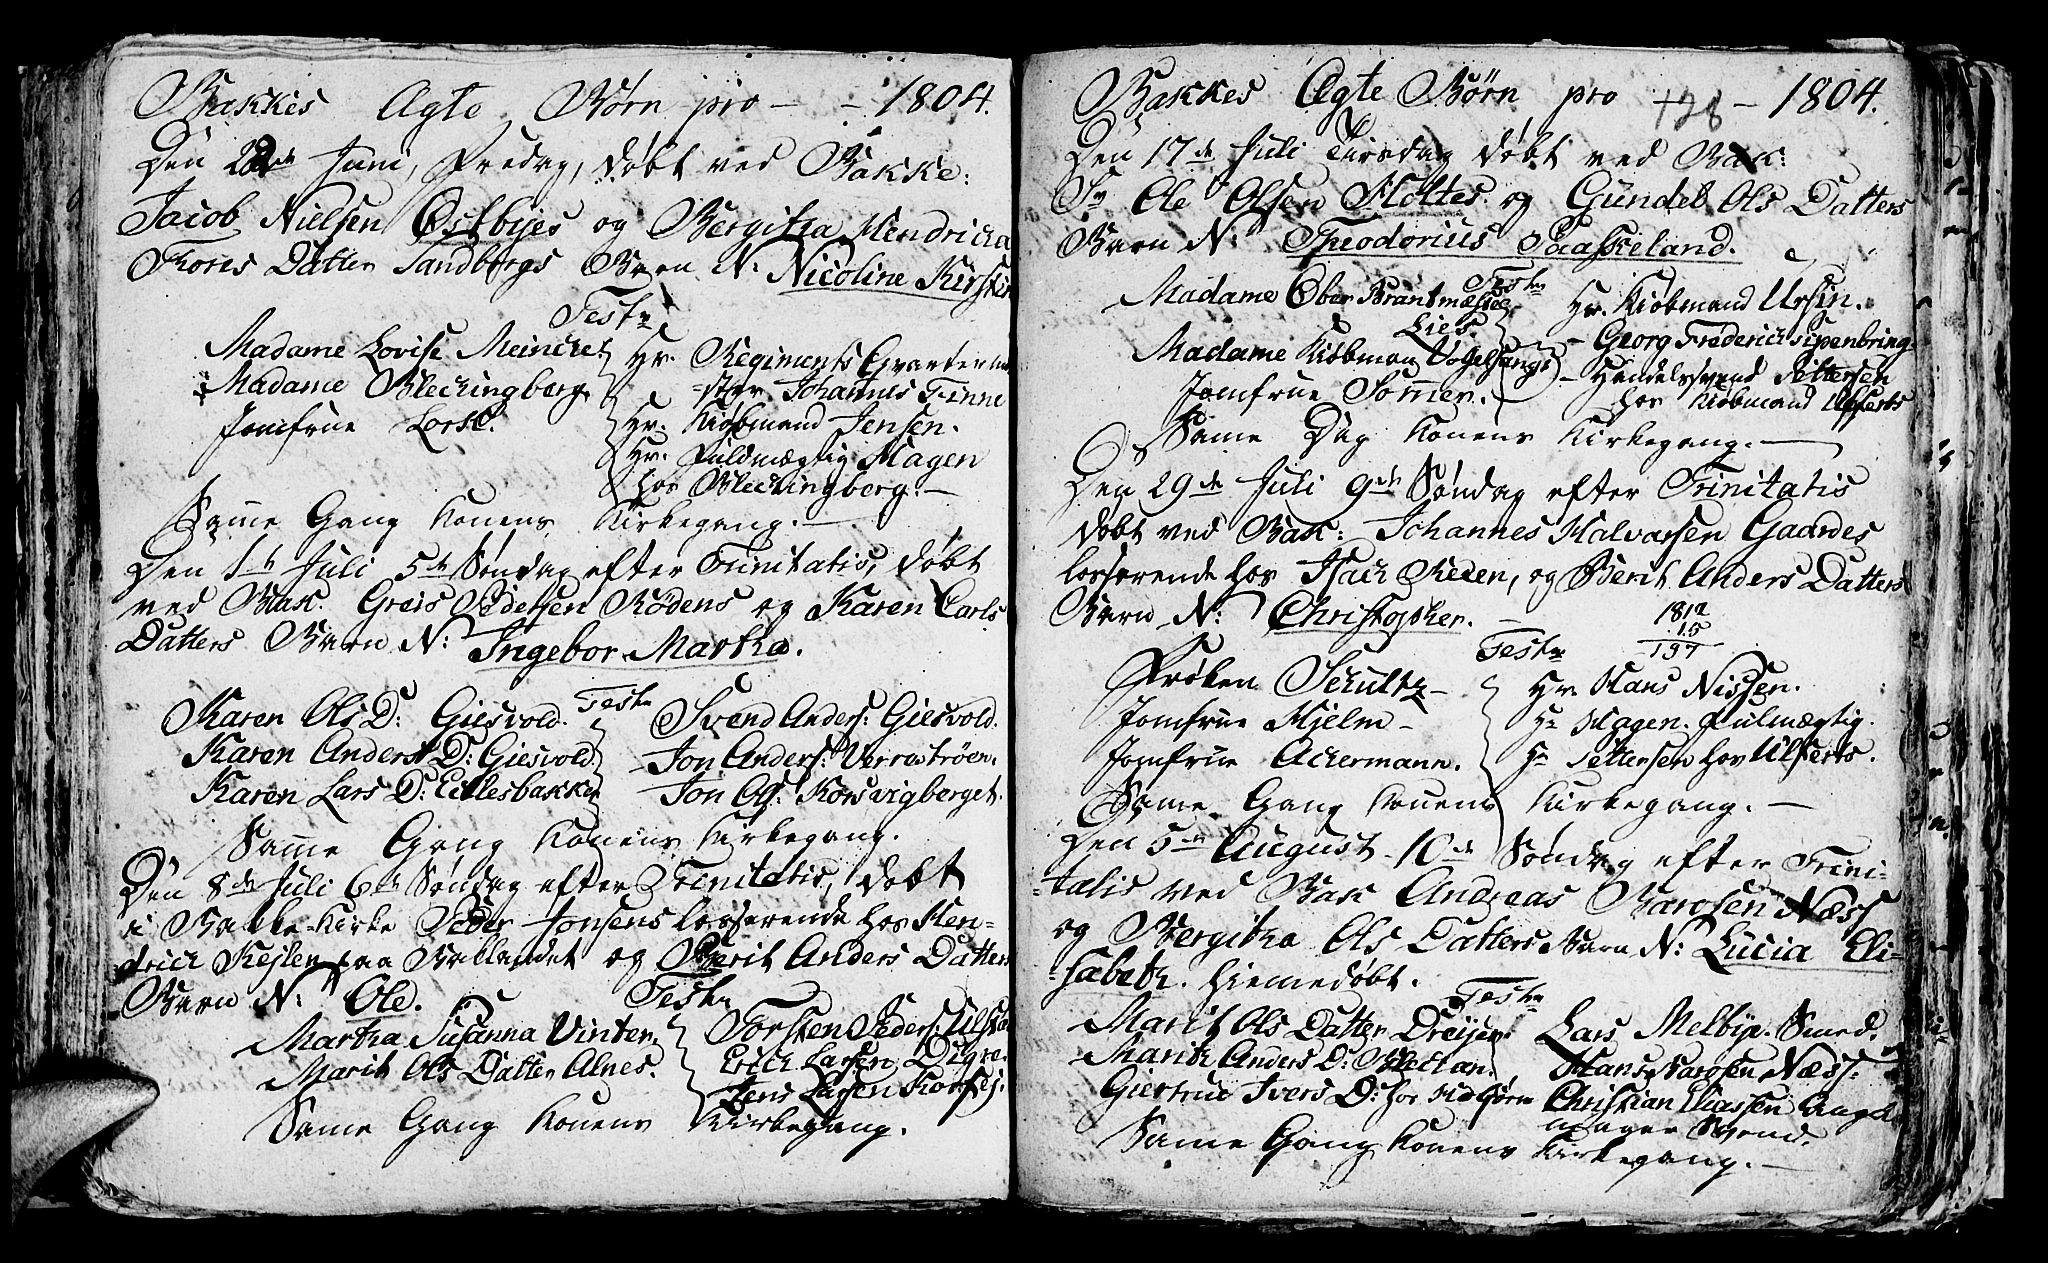 Bakkes Ægte Børn pro - - 1804.
Den 22de Juni, Fredag, døbt ved Bakke:
Jacob Nielsen Østbyes og Bergitha Hendricha
Tores Datter Sandbergs Barn N: Nicoline Kirsten
Test:
Madame Lovise Meincke
Madame Bleckingberg
Jomfrue Lorck.
Hr. Regiments Qvarterme
-ster Johannes Finne
Hr. Kiøbmand Jensen.
Hr. Fuldmægtig Hagen
hos Bleckingberg. -
Samme Gang Konens Kirkegang. -
Den 1te Juli 5te Søndag efter Trinitatis, døbt
ved Bak. Greis Pedersen Rødens og Karen Carls
Datters Barn N: Ingebor Martha.
Test:
Karen Ols D: Giesvold.
Karen Anders D: Giesvold.
Karen Lars D: Eellesbakken
Svend Anders: Giesvold.
Jon Anders: Verrostrøen.
Jon Ols: Korsvigberget.
Samme Gang Konens Kirkegang.
Den 8de Juli 6te Søndag efter Trinitatis, døbt
i Bakke-Kirke Peder Jonsens losserende hos Hen-
drich Kejlen paa Baklandet og Berit Anders Datters
Barn N: Ole.
Test:
Martha Susanna Vinter.
Marit Ols Datter Alnes.
Torsten Peders:
Erich Larsen Dugre.
Jens Larsen
Same Gang Konens Kirkegang.
Bakkes Ægte Børn pro - 1804.
128
Den 17de Juli Tirsdag døbt ved Bak:
Sr Ole Olsen Holtes og Gundel Ols Datters
Barn N: Theodorius Paaskeland.
Test:
Madame Ober Brantmester
Lies
Madame Kiøbman Vogelsang
Jomfrue Sommer.
Hr. Kiøbmand Ursin.
- Georg Frederich Pipenbring
- Handelssvend Pettersen
hos Kiøbmand Ulferts
Same Dag Konens Kirkegang. -
Den 29de Juli 9de Søndag efter Trinitatis
døbt ved Bak: Johannes Halvorsen Gaardes
losserende hos Isach Reden, og Berit Anders Datters
Barn N: Christopher. -
1812
15
197
Test:
Frøken Schultz -
Jomfrue Hjelm -
Jomfrue Ackermann.
Hr. Hans Nissen.
Hr Hagen. Fulmægtig.
Hr Pettersen hos Ulferts.
Same Gang Konens Kirkegang. -
Den 5te August 10de Søndag efter Trini-
-tatis ved Bak Andreas Barosen Næss
og Bergitha Ols Datters Barn N: Lucia Eli-
-sabeth. hiemedøbt.
Test:
Marit Ols Datter Dreijer
Marith Anders D:
Giertrue Ivers D: hos
Lars Melbye. Smed.
Hans Barosen Næss.
Christian Eliassen
mager Svend.
Same Gang Konens Kirkegang. -